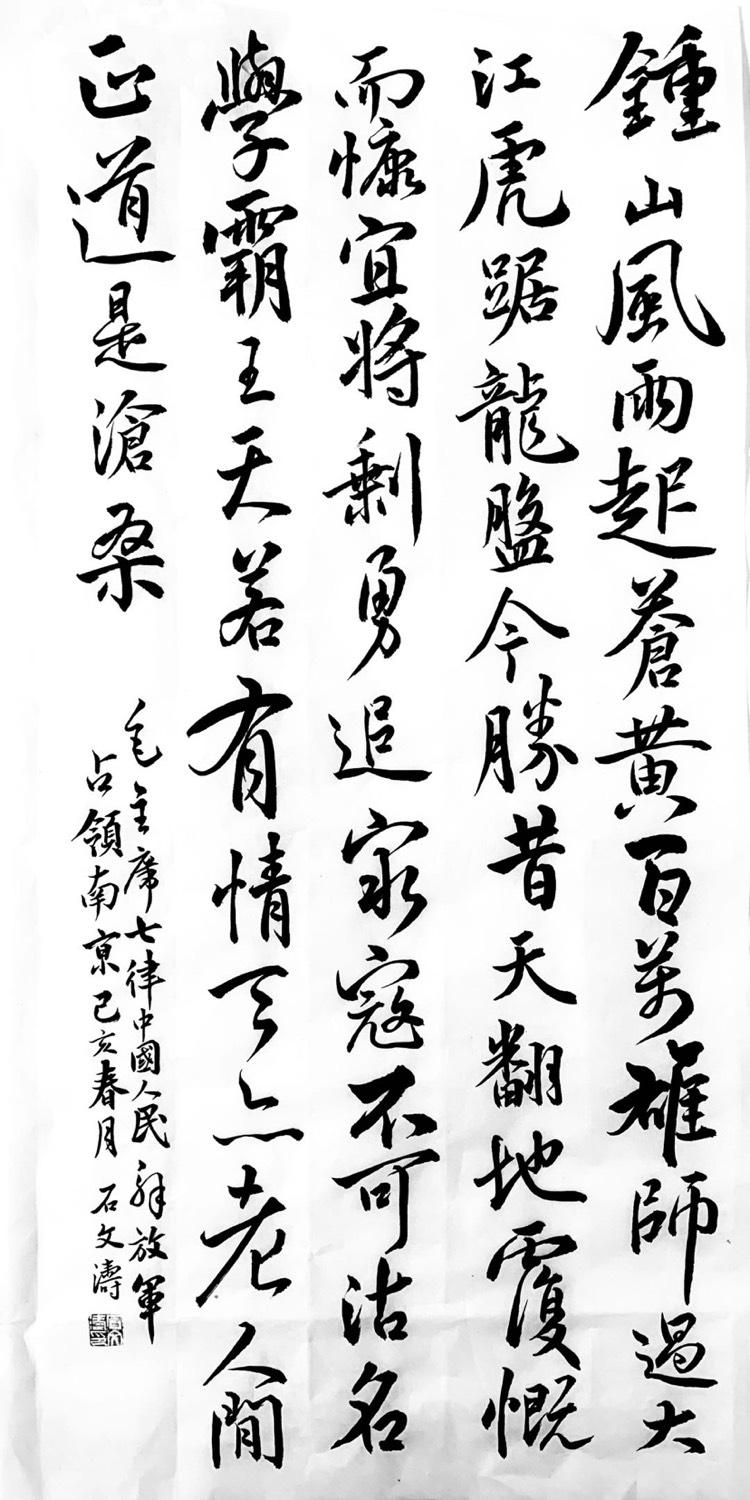 鍾山風雨起蒼黃百萬雄師過大
江虎踞龍盤今勝昔天翻地覆慨
而慷宜將剩勇追窮寇不可沽名
學霸王天若有情天亦老人間
正道是滄桑
毛主席七律中國人民解放軍
占領南京己亥春月石文濤